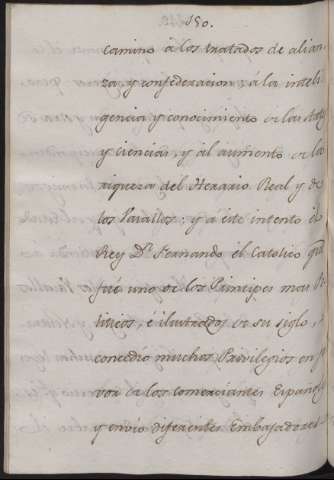 150.
camino à los tratados de alian-
za, y confederacion: à la inteli
gencia y conocimiento de las Artes
y ciencias, y al aumento de la
riqueza del Herario Real y de
los Vasallos: y a este intento el
Rey Dn. Fernando el Catolico que
fue uno de los Principes mas Po
liticos, é ilustrados de su siglo,
concedio muchos Privilegios en fa
vor de los comerciantes Españoles
y envio diferentes Embajadores